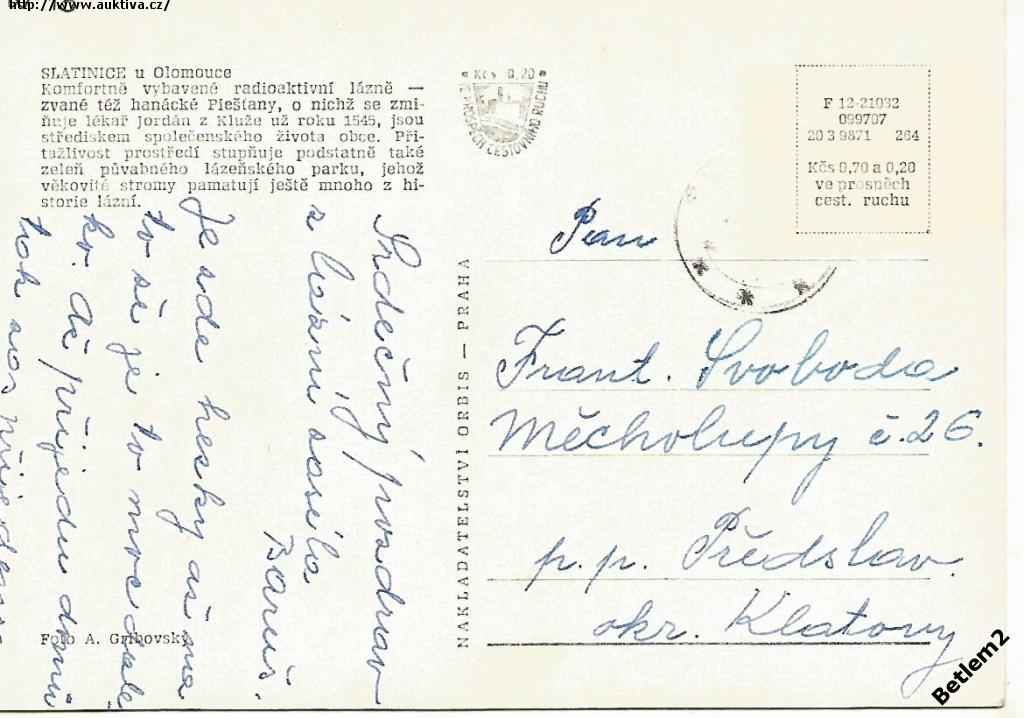 http://www.auktiva.cz/
SLATINICE u Olomouce
Komfortně vybavené radioaktivní lázně —
zvané též hanácké Piešťany, o nichž se zmi-
ňuje lékař Jordán z Kluže už roku 1545, jsou
střediskem společenského života obce. Při-
tažlivost prostředí stupňuje podstatně také
zeleň půvabného lázeňského parku, jehož
věkovité stromy pamatují ještě mnoho z hi-
storie lázní.
Kčs 0,20
VE PROSPĚCH CESTOVNÍHO RUCHU
F 12-21032
099707
20 3 9871 264
Kčs 0,70 a 0,20
ve prospěch
cest. ruchu
Srdečný pozdrav
z lázní zasílá
Baruš.
Je zde hezky až na
to že je to moc dale
ko. Až přijedu domů
tak
NAKLADATELSTVÍ ORBIS — PRAHA
Pan
Frant. Svoboda
Měcholupy č. 26.
p. p. Předslav.
okr. Klatovy
Foto A. Gribovský
Betlem2